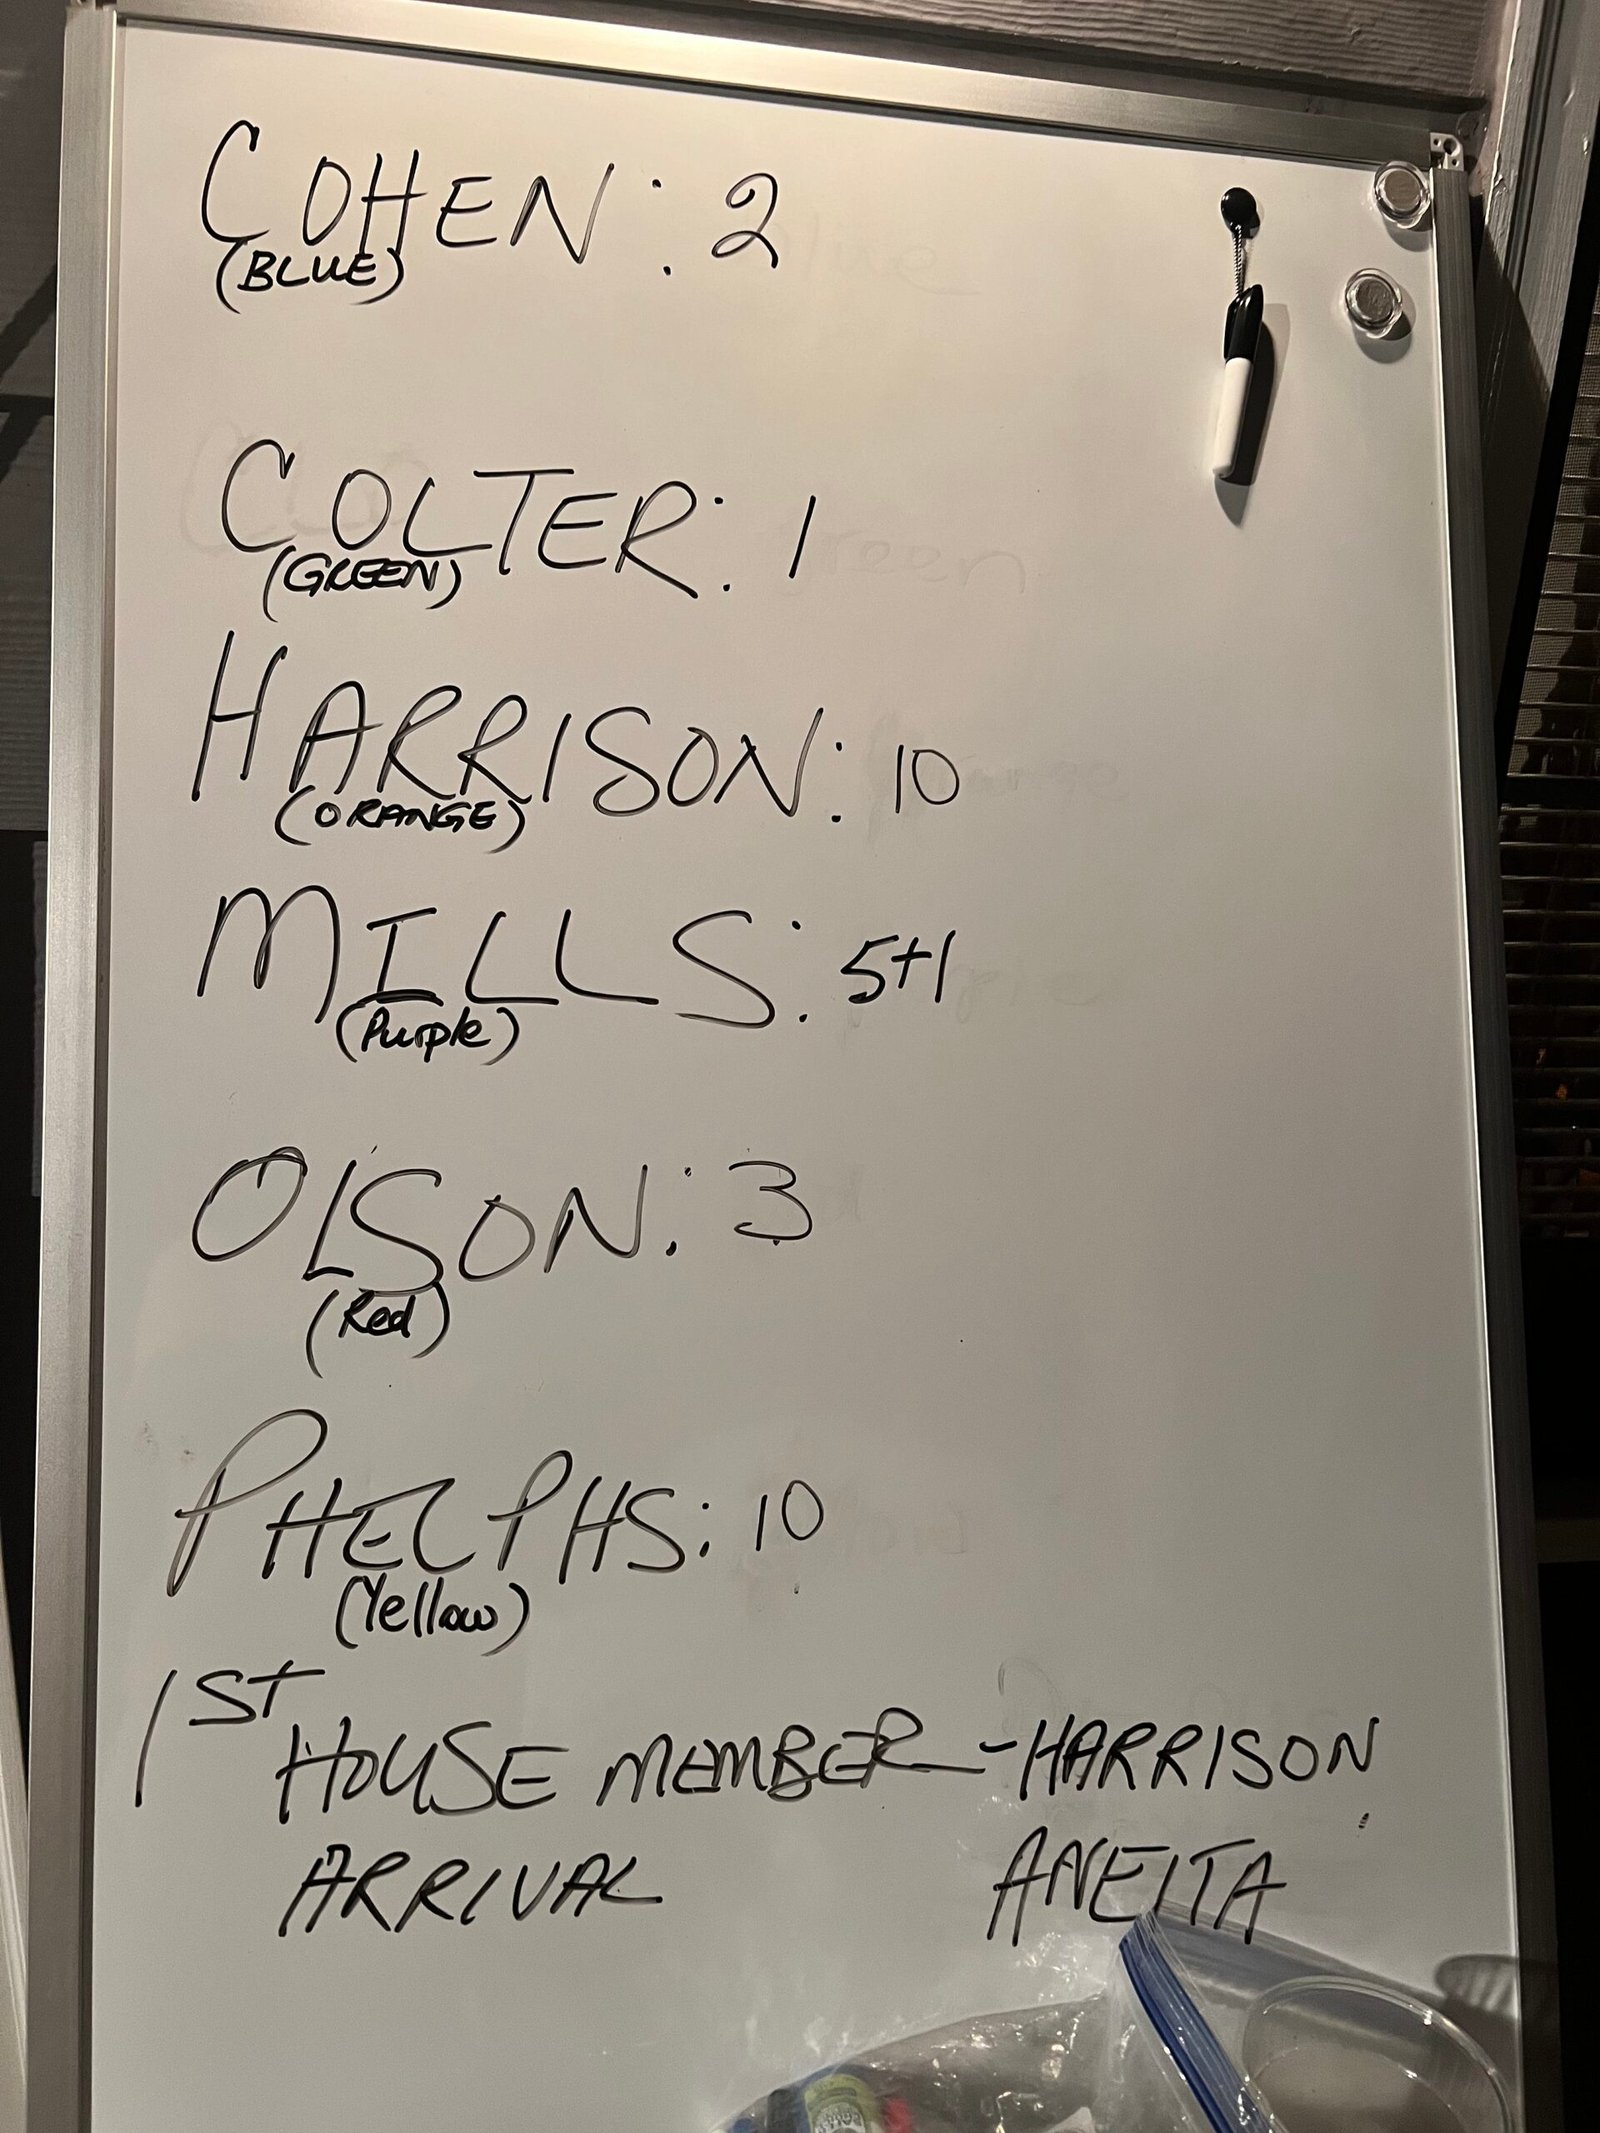 COHEN: 2
(BLUE)
COLTER: 1
(GREEN)
HARRISON: 10
(ORANGE)
MILLS: 5+1
(Purple)
OLSON: 3
(Red)
PHELPHS: 10
(Yellow)
1ST
HOUSE MEMBER - HARRISON
ARRIVAL ANEITA